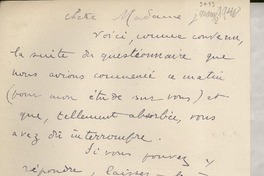 Chère Madame,
Voici, comme convenu,
la suite du questionnaire que
nous avions commencé ce matin
(pour mon étude sur vous) et
que, tellement absorbée, vous
avez dû interrompre.
Si vous pouvez y
répondre, laissez-